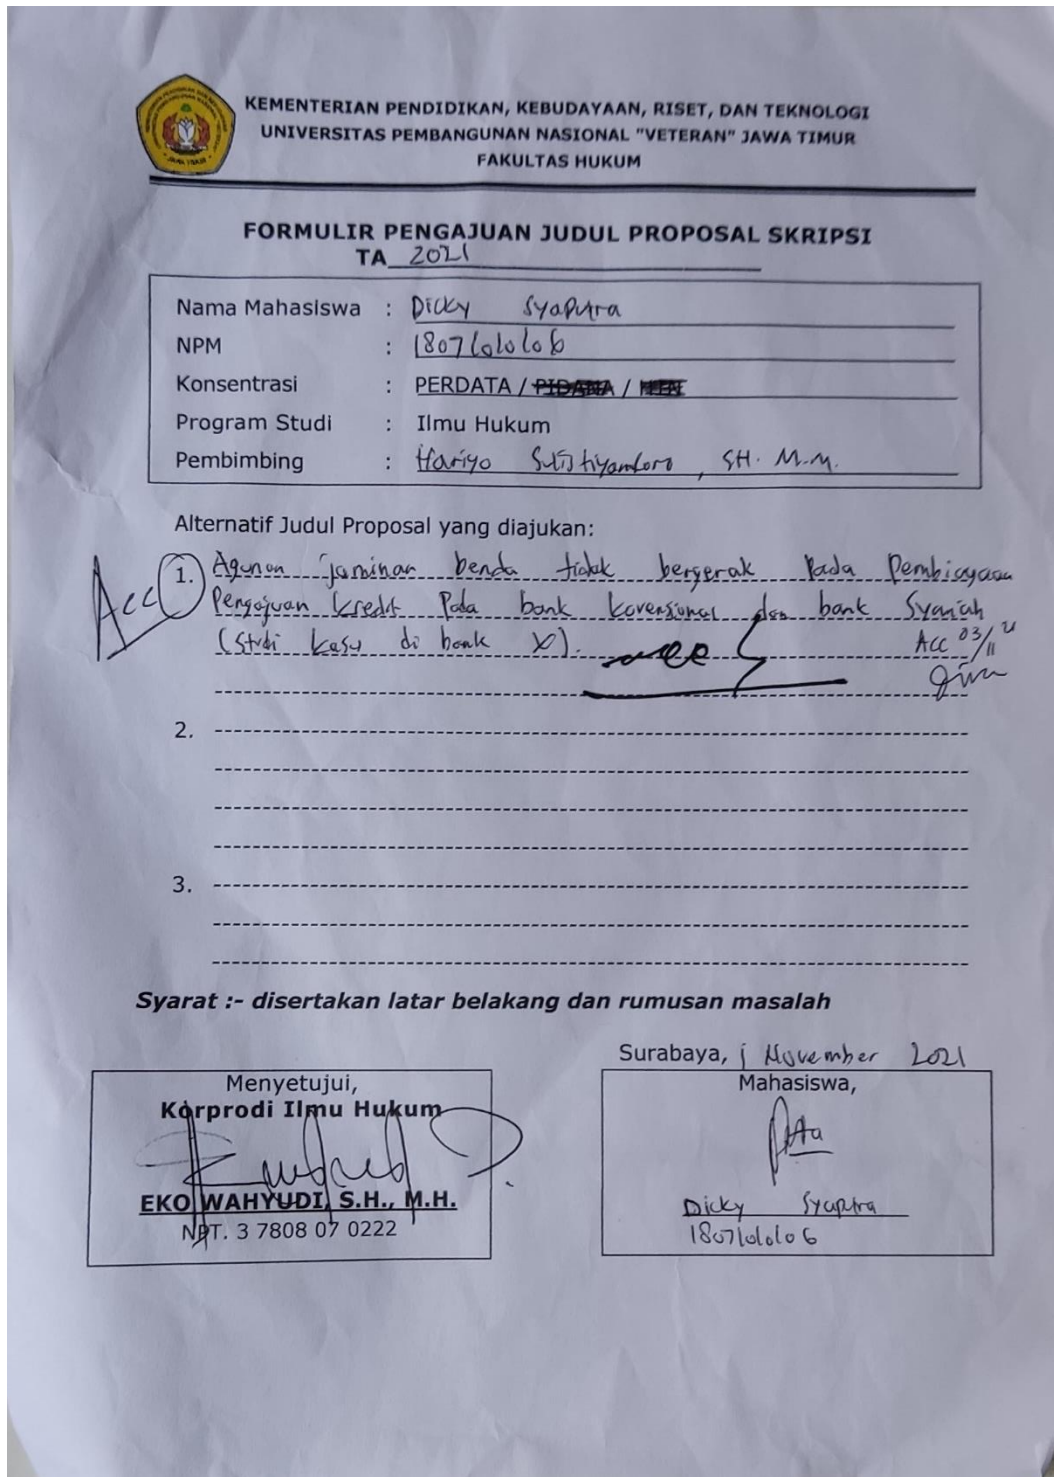 KEMENTERIAN PENDIDIKAN, KEBUDAYAAN, RISET, DAN TEKNOLOGI
UNIVERSITAS PEMBANGUNAN NASIONAL "VETERAN" JAWA TIMUR
FAKULTAS HUKUM
JAWA TIMUR
FORMULIR PENGAJUAN JUDUL PROPOSAL SKRIPSI
TA 2021
Nama Mahasiswa : Dicky Syaputra
NPM : 18071010106
Konsentrasi : PERDATA / PIDANA /
Program Studi : Ilmu Hukum
Pembimbing : Hariyo Sulistiyantoro, SH. M.M.
Alternatif Judul Proposal yang diajukan:
Acc 1. Agunan jaminan benda tidak bergerak Pada Pembiayaan
Pengajuan kredit Pada bank kovensional dan bank Syariah
(Studi kasus di bank X). Acc 03/11 21
2.
3.
Syarat :- disertakan latar belakang dan rumusan masalah
Surabaya, 1 November 2021
Menyetujui,
Korprodi Ilmu Hukum
EKO WAHYUDI, S.H., M.H.
NPT. 3 7808 07 0222
Mahasiswa,
Dicky Syaputra
18071010106